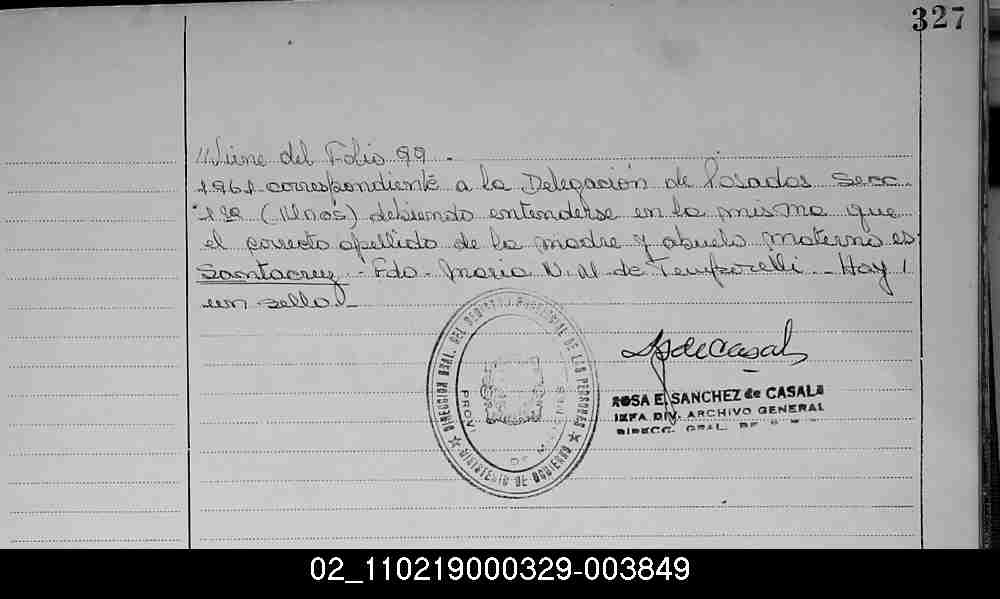 327
//Viene del Folio 99.
1961 correspondiente a la Delegación de Posadas Secc.
1ra (Unos) debiendo entenderse en la misma que
el correcto apellido de la madre y abuelo materno es
Santacruz - Fdo. María N. M. de Temporelli - Hay
un sello/-
DIRECCION GRAL. DEL REGISTRO PROVINCIAL DE LAS PERSONAS
PROVI DE MISIONES
★ MINISTERIO DE GOBIERNO ★
deCasal
ROSA E. SANCHEZ de CASALA
JEFA DIV. ARCHIVO GENERAL
DIRECC. GRAL. DE
02_110219000329-003849